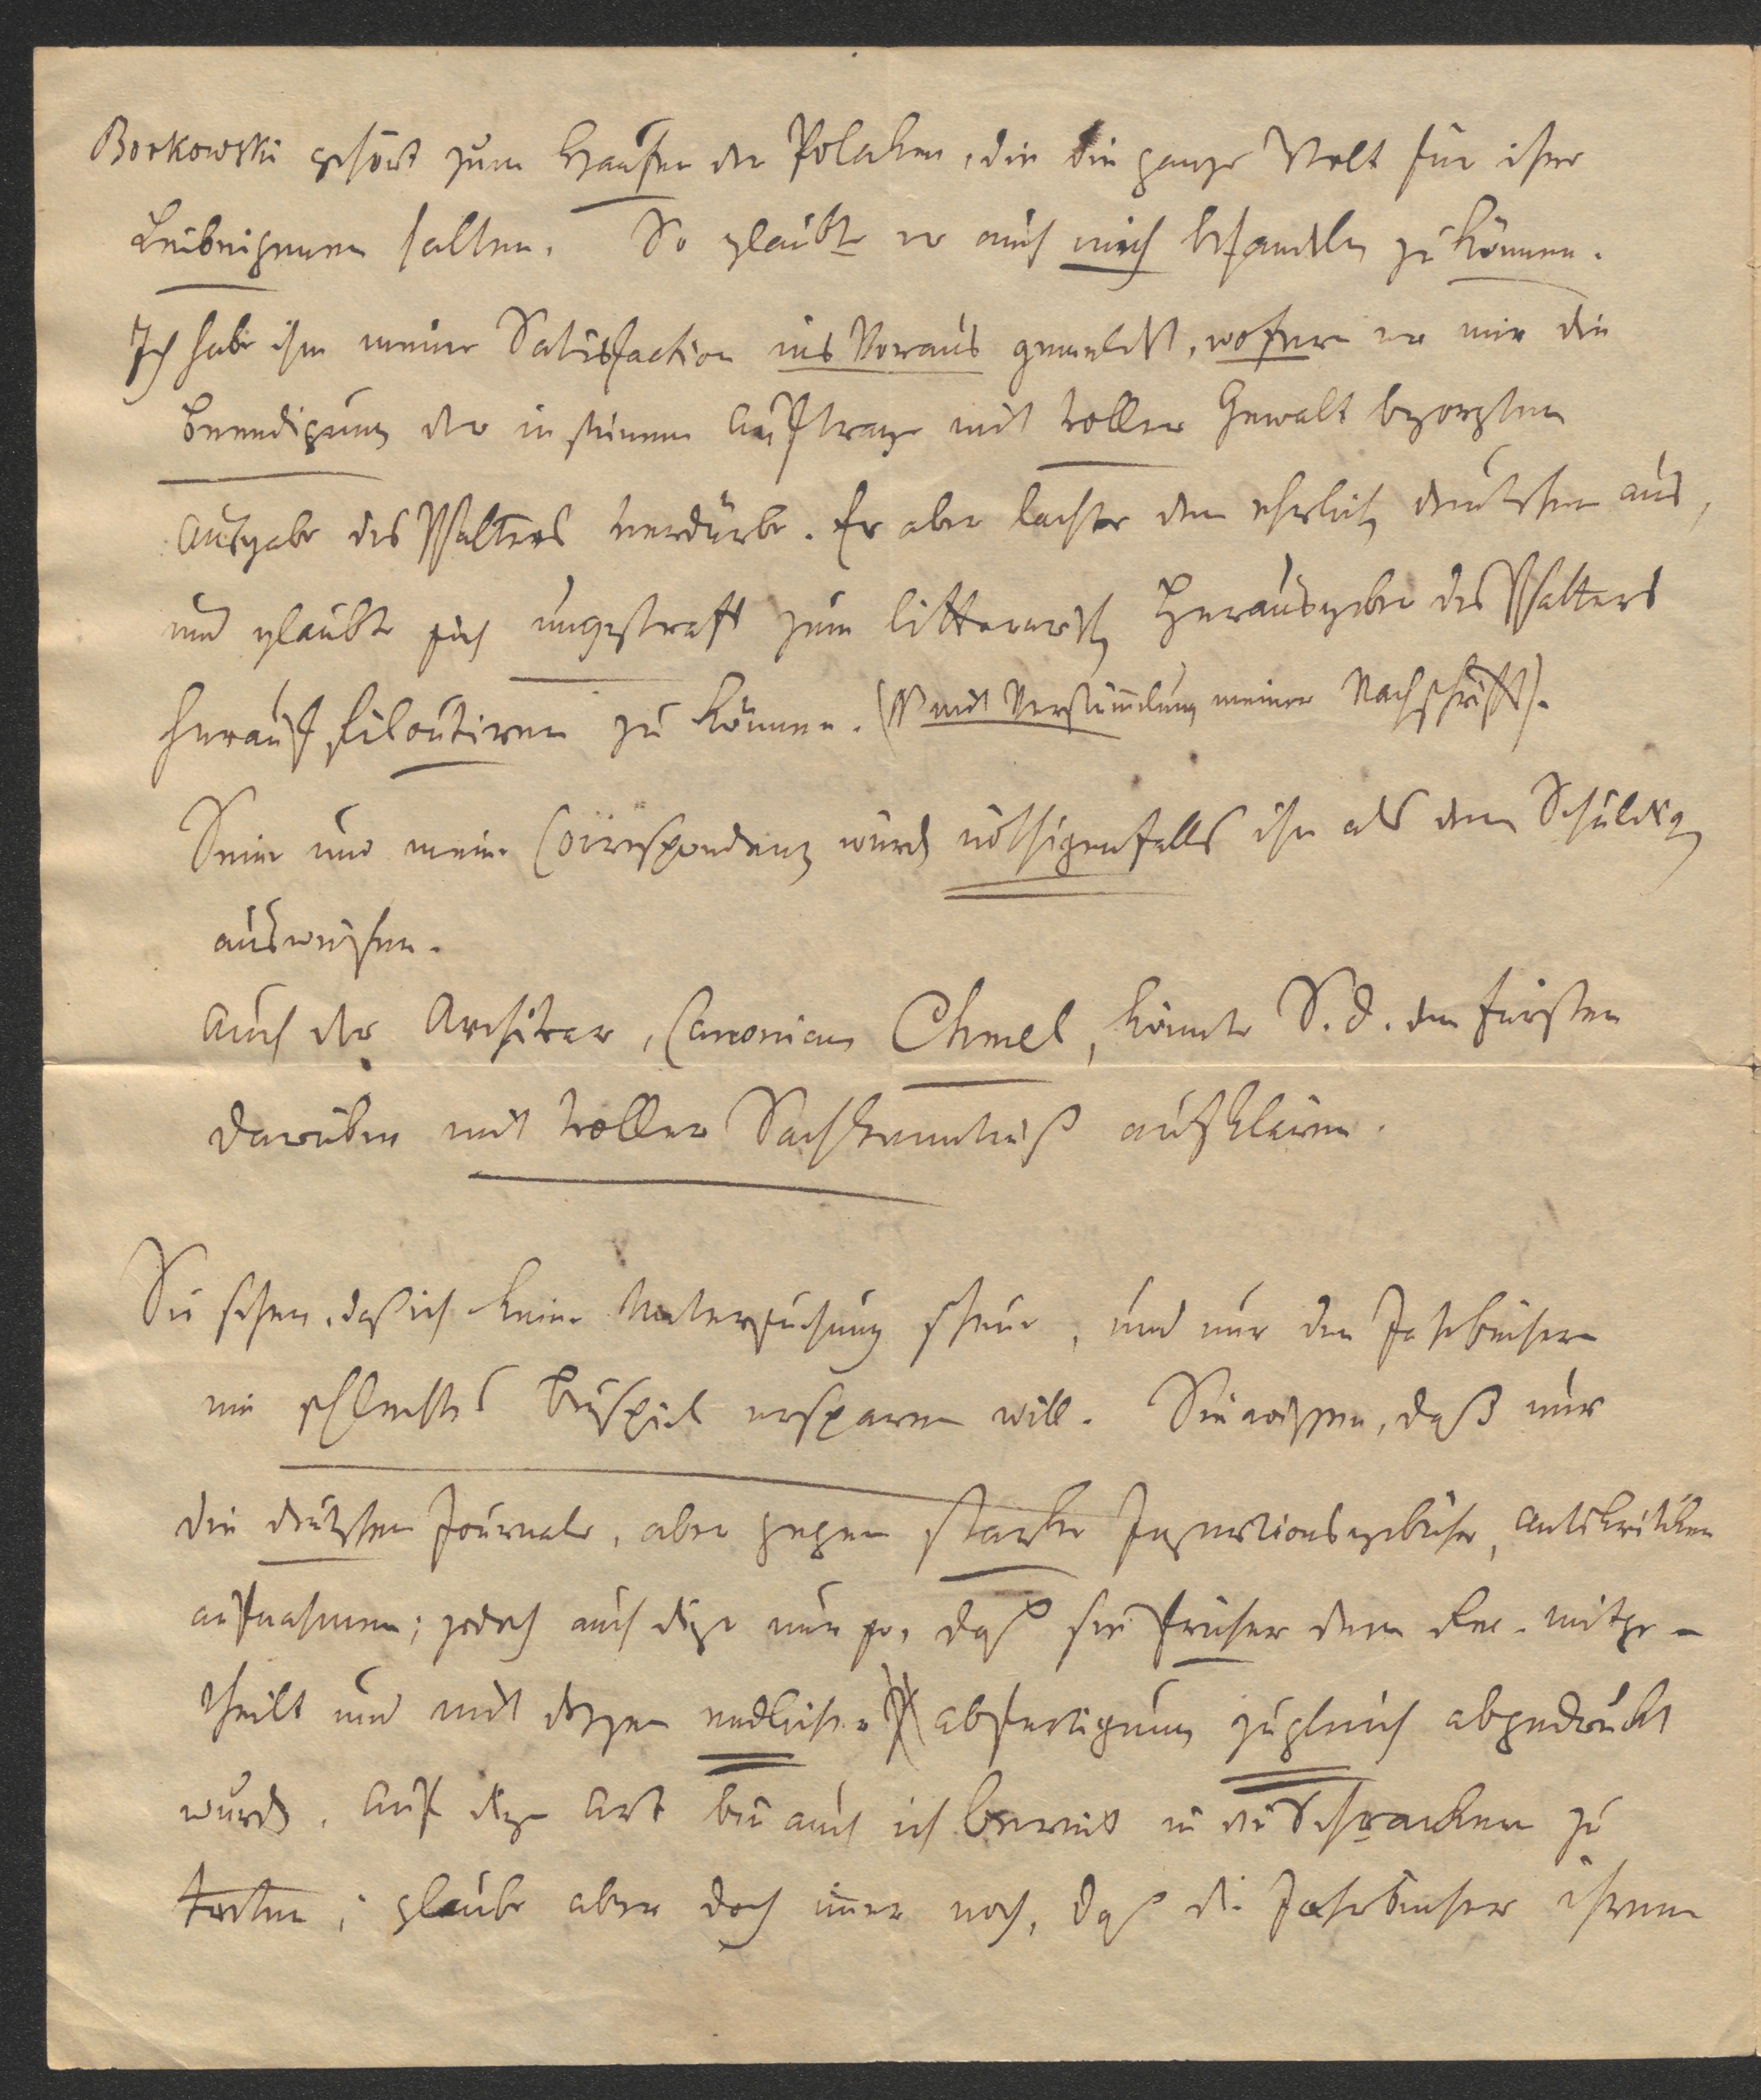 Borkowski gehört zum Haufen der Polacken, die die ganze Welt für ihre
Leibeigenen halten. So glaubte er auch mich behandeln zu können.
Ich habe ihm meine Satisfaction ins Voraus gemeldet, wofern er mir die
Beendigung der in seinem Auftrage mit voller Gewalt besorgten
Ausgabe des Psalters verdürbe. Er aber lachte den ehrlichen Deutschen aus,
und glaubte sich ungestraft zum litterarischen Herausgeber des Psalters
herauf filoutiren zu können. (mit Verstümmlung meiner Nachschrift).
Seine und meine Correspondenz würde nöthigenfalls ihn als den Schuldigen
ausweisen.
Auch der Archivar, Canonicus Chmel, könnte S. D. den Fürsten
darüber mit voller Sachkenntniß aufklären.
Sie sehen, daß ich keine Untersuchung scheue, und nur den Jahrbüchern
ein schlechtes Beispiel ersparen will. Sie wissen, daß nur
die deutschen Journale, aber gegen starke Insertionsgebühr, Antikritiken
aufnahmen; jedoch auch diese nur so, daß sie früher dem Rec. mitge-
theilt und mit dessen endlicher Abfertigung zugleich abgedruckt
wurde. Auf diese Art bin auch ich bereit in die Schrancken zu
treten; glaube aber doch immer noch, daß die Jahrbücher ihrem